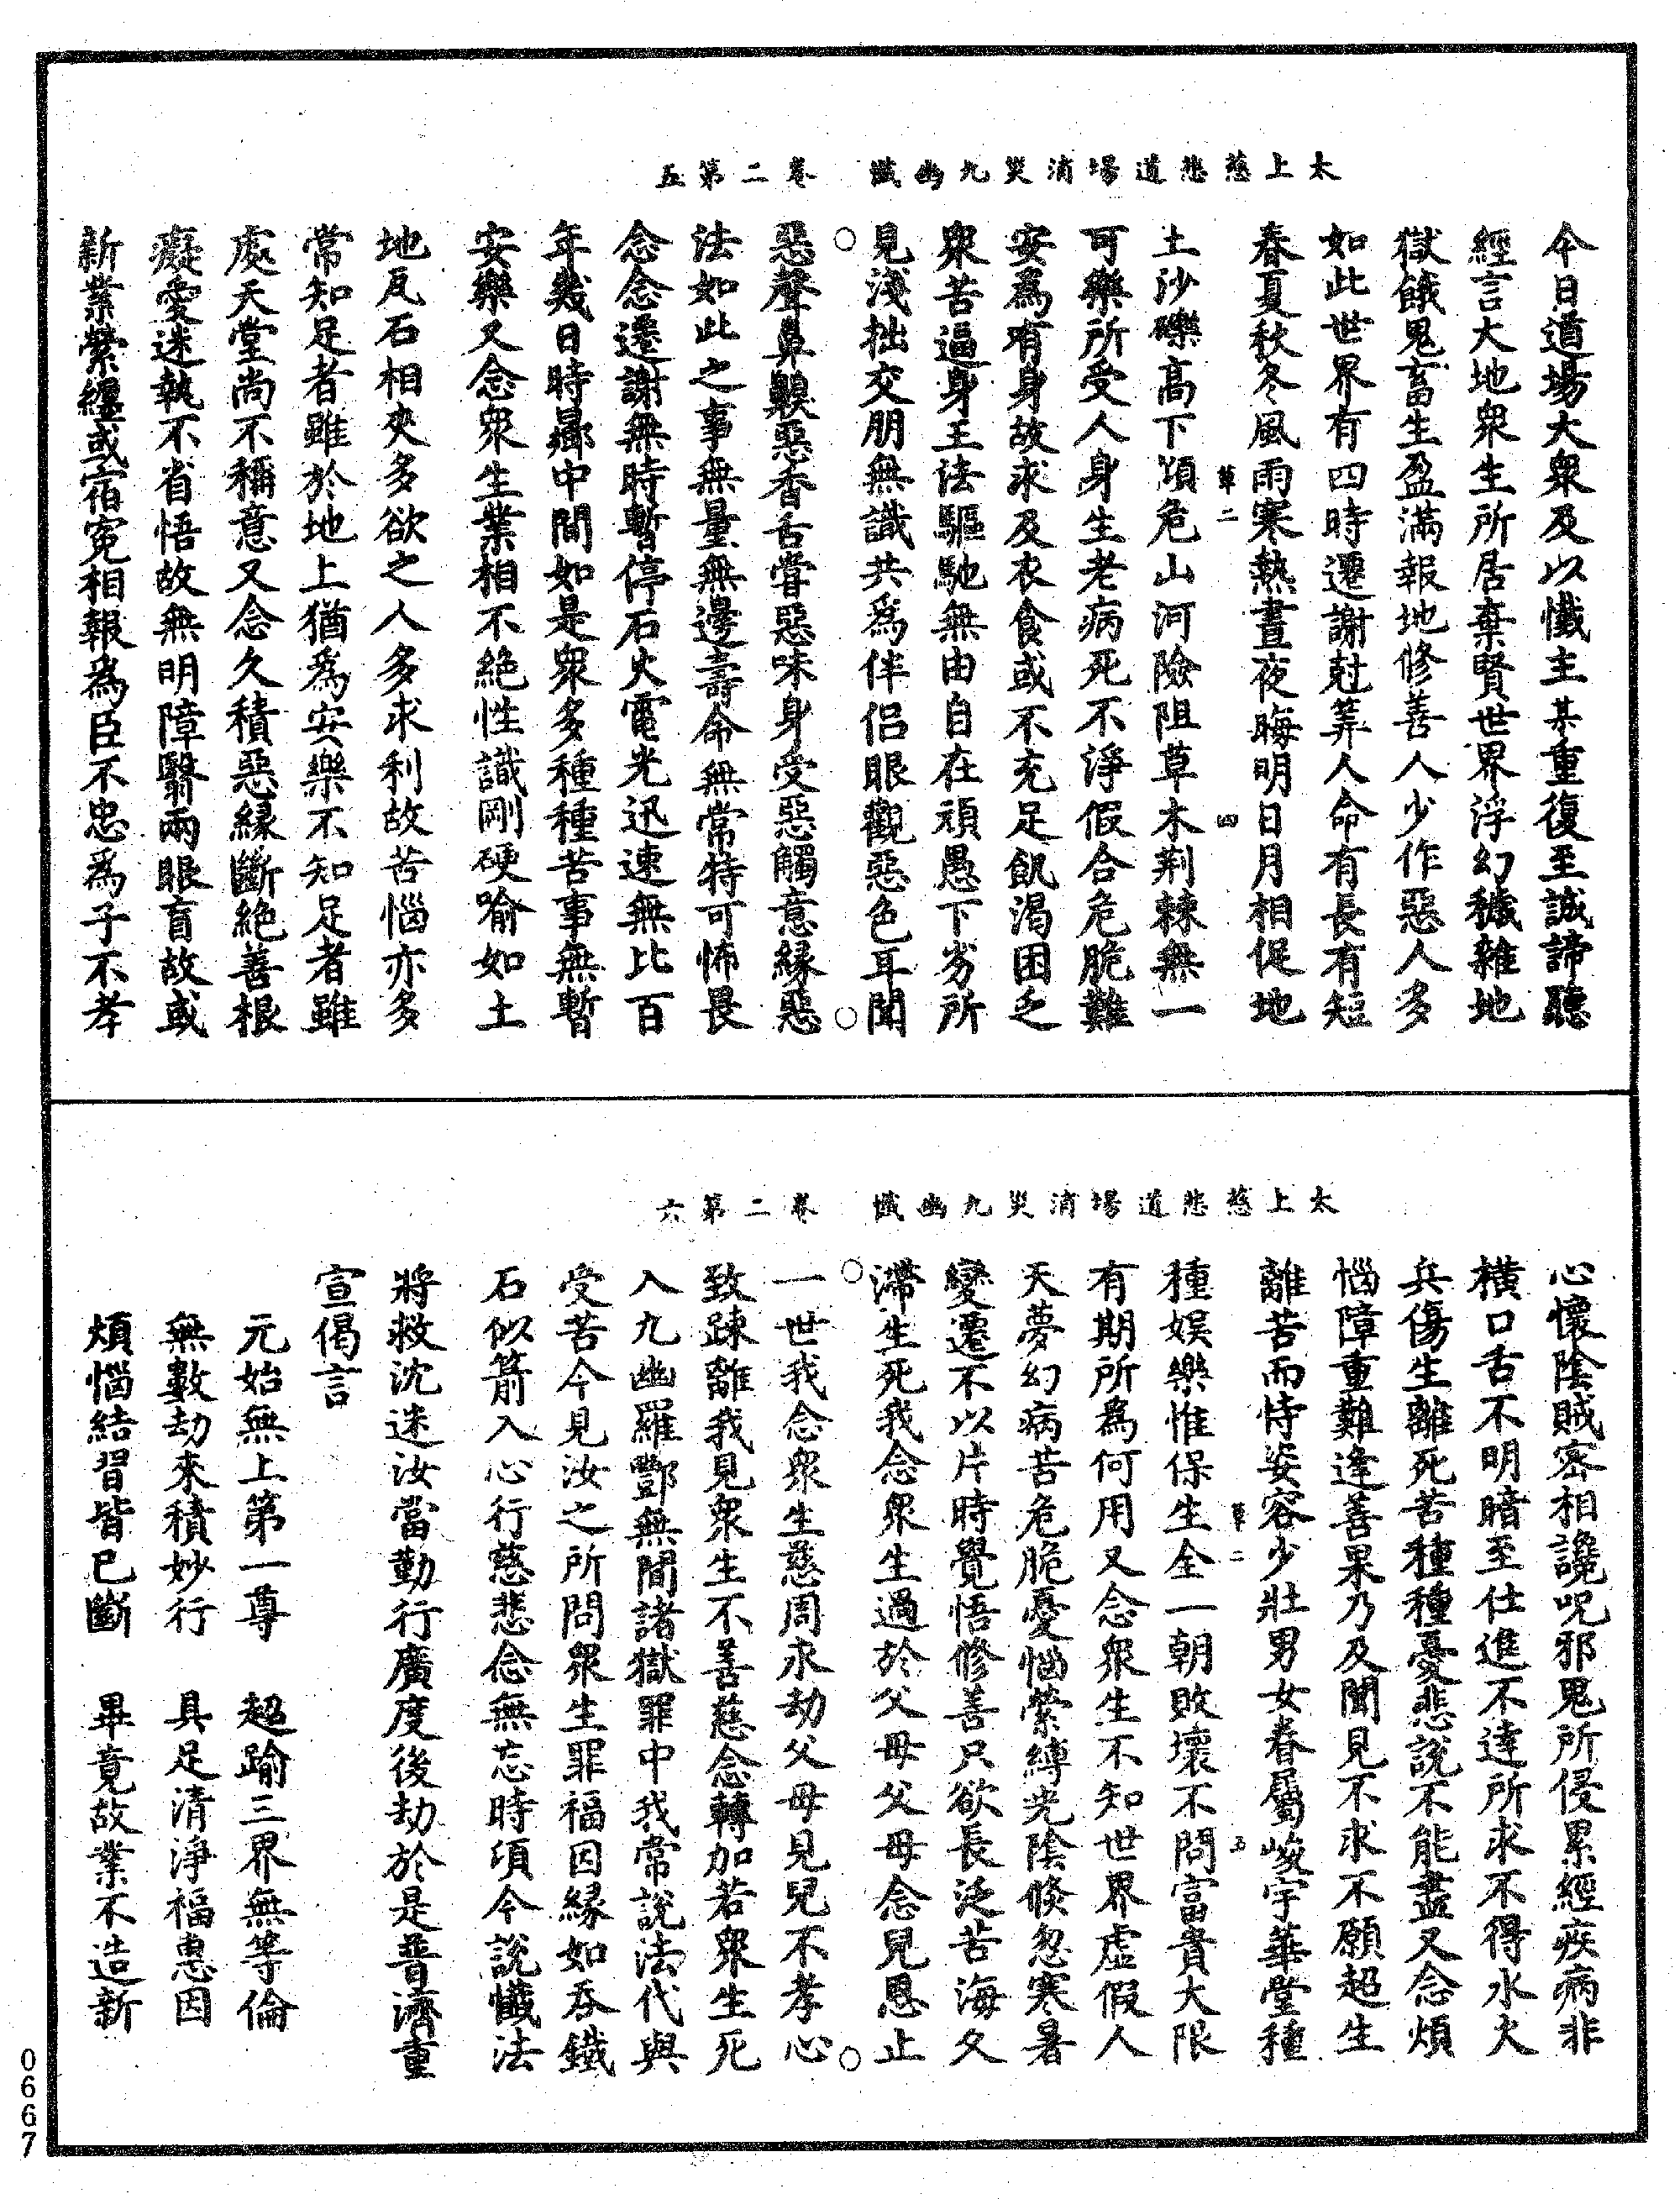 太上慈悲道場消災九幽懺　卷二第五
今日道場大衆及以懺主某重復至誠諦聽
經言大地衆生所居棄賢世界浮幻穢雜地
獄餓鬼畜生盈滿報地修善人少作惡人多
如此世界有四時遷謝尅筭人命有長有短
春夏秋冬風雨寒熱晝夜晦明日月相促地
草二　四
土沙礫高下傾危山河險阻草木荆棘無一
可樂所受人身生老病死不淨假合危脆難
安爲有身故求及衣食或不充足飢渴困乏
衆苦逼身王法驅馳無由自在頑愚下劣所
見淺拙交朋無識共爲伴侣眼觀惡色耳聞
惡聲鼻齅惡香舌甞惡味身受惡觸意緣惡
法如此之事無量無邊壽命無常特可怖畏
念念遷謝無時暫停石火電光迅速無比百
年幾日時𡻕中間如是衆多種種苦事無暫
安樂又念衆生業相不絶性識剛硬喻如土
地瓦石相夾多欲之人多求利故苦惱亦多
常知足者雖於地上猶爲安樂不知足者雖
處天堂尚不稱意又念久積惡緣斷絶善根
癡愛迷執不省悟故無明障翳兩眼盲故或
新業縈纏或宿寃相報爲臣不忠爲子不孝
太上慈悲道場消災九幽懺　卷二第六
心懷陰賊宻相讒呪邪鬼所侵累經疾病非
橫口舌不明暗至仕進不達所求不得水火
兵傷生離死苦種種憂悲説不能盡又念煩
惱障重難逢善果乃及聞見不求不願超生
離苦而恃姿容少壯男女眷屬峻宇華堂種
草二　五
種娛樂惟保生全一朝敗壞不問富貴大限
有期所爲何用又念衆生不知世界虚假人
天夢幻病苦危脆憂惱縈縛光陰倐忽寒暑
變遷不以片時覺悟修善只欲長泛苦海久
滯生死我念衆生過於父母父母念兒恩止
一世我念衆生慈周永劫父母見兒不孝心
致踈離我見衆生不善慈念轉加若衆生死
入九幽羅酆無間諸獄罪中我常説法代與
受苦今見汝之所問衆生罪福因緣如吞鐵
石似箭入心行慈悲念無忘時頃今説懺法
將救沈迷汝當勤行廣度後劫於是普濟重
宣偈言
元始無上第一尊　超踰三界無等倫
無數劫來積妙行　具足清淨福惠因
煩惱結習皆已斷　畢竟故業不造新
0667